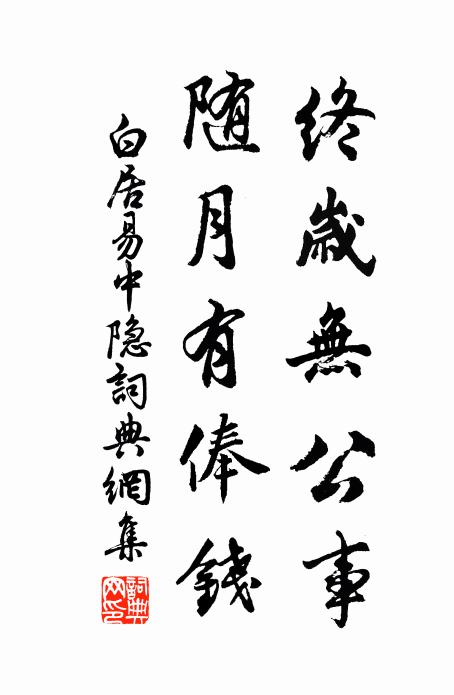 終歲無公事
随月有俸錢
白居易中隐詞典網集
詞典網印